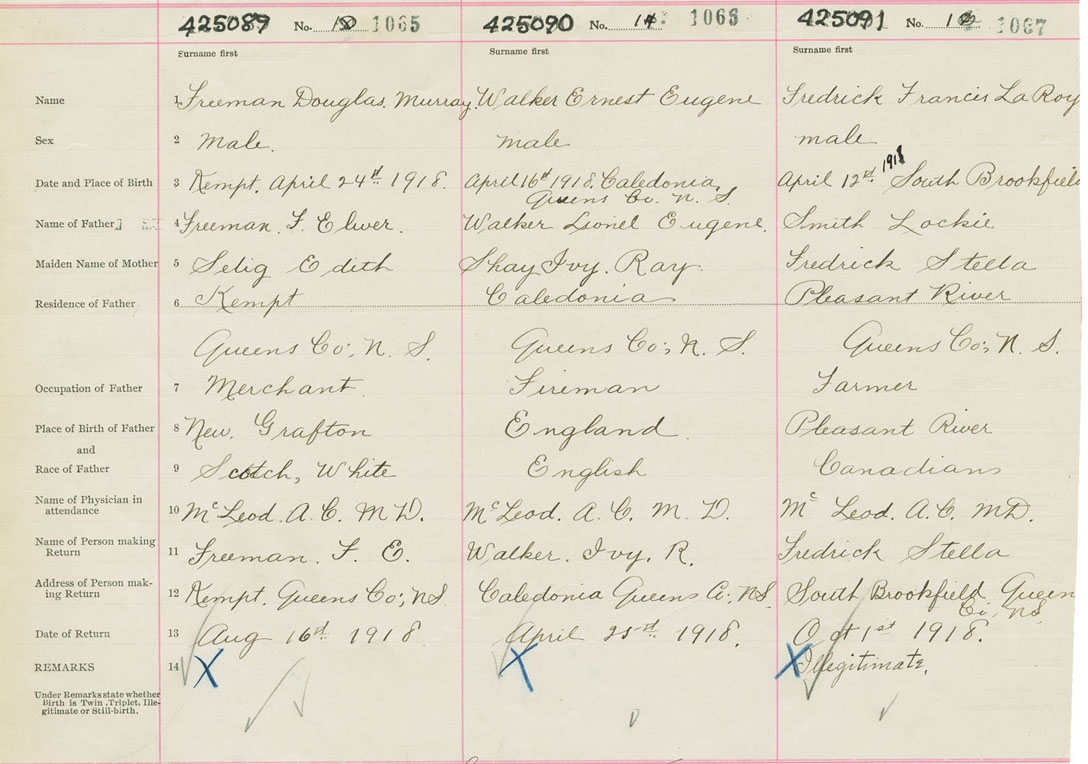 425089 No. 1065 425090 No. 14 1066 425091 No. 1067
Surname first Surname first Surname first
Name 1 Freeman Douglas. Murray. Walker Ernest Eugene Fredrick Francis LaRoy
Sex 2 Male. male male
Date and Place of Birth 3 Kempt. April 24th 1918. April 16th 1918. Caledonia, Queens Co. N. S. April 12th 1918 South Brookfield
Name of Father 4 Freeman. F. Elwer. Walker Lionel Eugene. Smith Lockie
Maiden Name of Mother 5 Selig Edith Shay Ivy. Ray. Fredrick Stella
Residence of Father 6 Kempt Caledonia Pleasant River
Queens Co; N. S. Queens Co; N. S. Queens Co; N. S.
Occupation of Father 7 Merchant. Fireman Farmer
Place of Birth of Father 8 New. Grafton England. Pleasant River
and
Race of Father 9 Scotch, White English Canadians
Name of Physician in
attendance 10 McLeod. A. C. M D. McLeod. A. C. M. D. Mc Leod. A. C. MD.
Name of Person making
Return 11 Freeman. F. E. Walker. Ivy. R. Fredrick Stella
Address of Person mak-
ing Return 12 Kempt. Queens Co; NS Caledonia Queens Co. NS. South Brookfield Queen Co; NS.
Date of Return 13 Aug 16th 1918 April 25th 1918. Oct 1st 1918.
REMARKS 14 X X X Illegitimate.
Under Remarks state whether
Birth is Twin, Triplet, Ille-
gitimate or Still-birth.